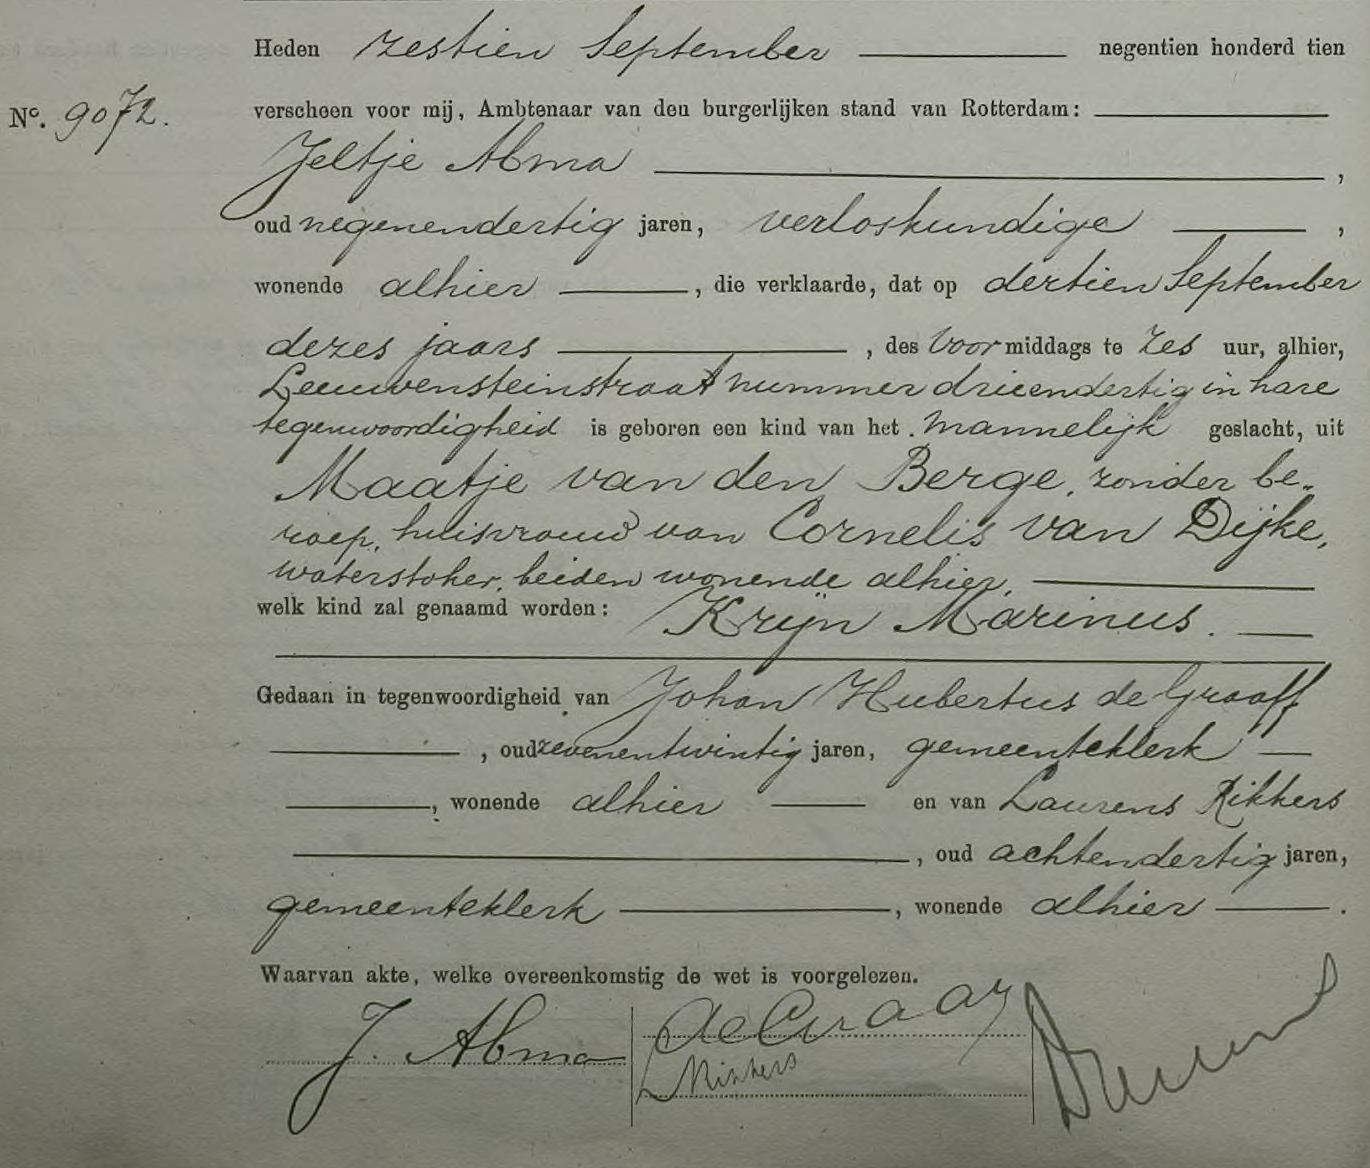 Heden zestien September negentien honderd tien
No. 9072. verscheen voor mij, Ambtenaar van den burgerlijken stand van Rotterdam:
Jeltje Abma ,
oud negenendertig jaren, verloskundige ,
wonende alhier , die verklaarde, dat op dertien September
dezes jaars , des Voormiddags te zes uur, alhier,
Leeuwensteinstraat nummer drieendertig in hare
tegenwoordigheid is geboren een kind van het mannelijk geslacht, uit
Maatje van den Berge, zonder be-
roep, huisvrouw van Cornelis van Dijke,
waterstoker, beiden wonende alhier,
welk kind zal genaamd worden: Krijn Marinus.
Gedaan in tegenwoordigheid van Johan Hubertus de Graaff
, oud zevenentwintig jaren, gemeenteklerk
, wonende alhier en van Laurens Rikkers
, oud achtendertig jaren,
gemeenteklerk , wonende alhier .
Waarvan akte, welke overeenkomstig de wet is voorgelezen.
J. Abma de Graaff
LRikkers